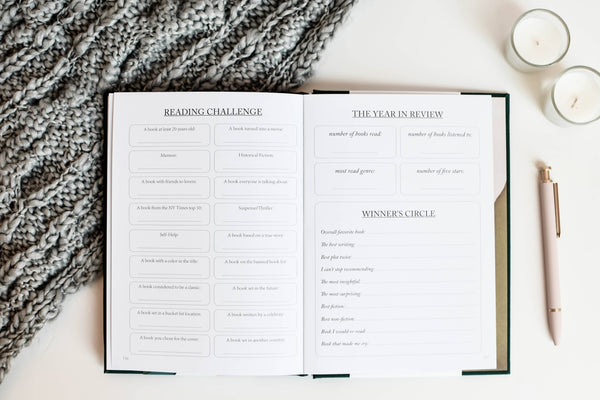 READING CHALLENGE
A book at least 20 years old:
A book turned into a movie:
Memoir:
Historical Fiction:
A book with friends to lovers:
A book everyone is talking about:
A book from the NY Times top 50:
Suspense/Thriller:
Self-Help:
A book based on a true story:
A book with a color in the title:
A book on the banned book list:
A book considered to be a classic:
A book set in the future:
A book set in a bucket list location:
A book written by a celebrity:
A book you chose for the cover:
A book set in another country:
THE YEAR IN REVIEW
number of books read:
number of books listened to:
most read genre:
number of five stars:
WINNER'S CIRCLE
Overall favorite book:
The best writing:
Best plot twist:
I can't stop recommending:
The most insightful:
The most surprising:
Best fiction:
Best non-fiction:
Book I would re-read:
Book that made me cry: